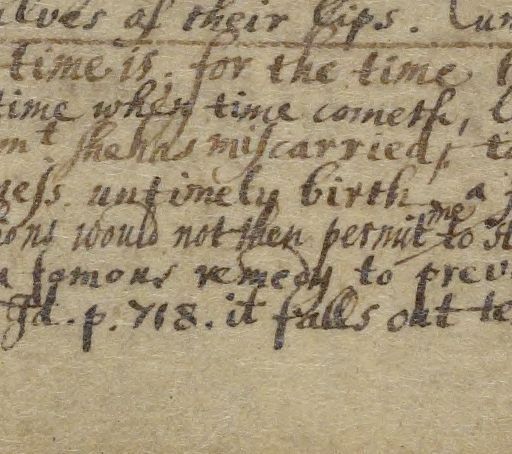 alves of their lips.
time is. for the time
time when time cometh,
m^t she has miscarried,
ness. untimely birth a
ons would not then permit me to
a famous remedy to prev
Id. p. 718. it falls out te